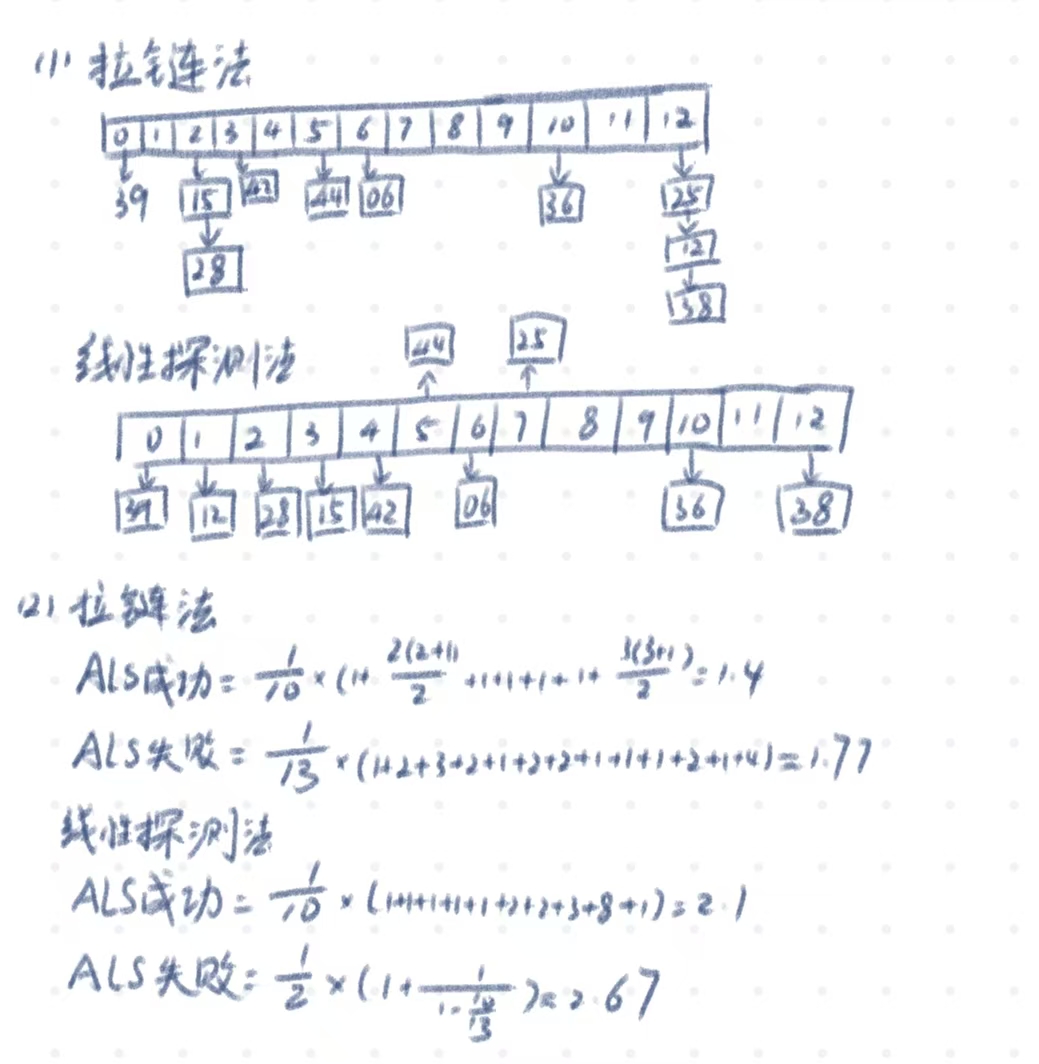 (1) 拉链法
0 1 2 3 4 5 6 7 8 9 10 11 12
39 15 42 44 06 36 25
28 12
38
44 25
线性探测法
0 1 2 3 4 5 6 7 8 9 10 11 12
39 12 28 15 42 06 36 38
(2) 拉链法
ALS成功 = 1/10 × (1+ 2(2+1)/2 +1+1+1+1+ 3(3+1)/2) = 1.4
ALS失败 = 1/13 × (1+2+3+2+1+2+2+1+1+1+2+1+4) = 1.77
线性探测法
ALS成功 = 1/10 × (1+1+1+1+1+2+2+3+8+1) = 2.1
ALS失败 = 1/2 × (1+ 1/(1-10/13)) = 2.67